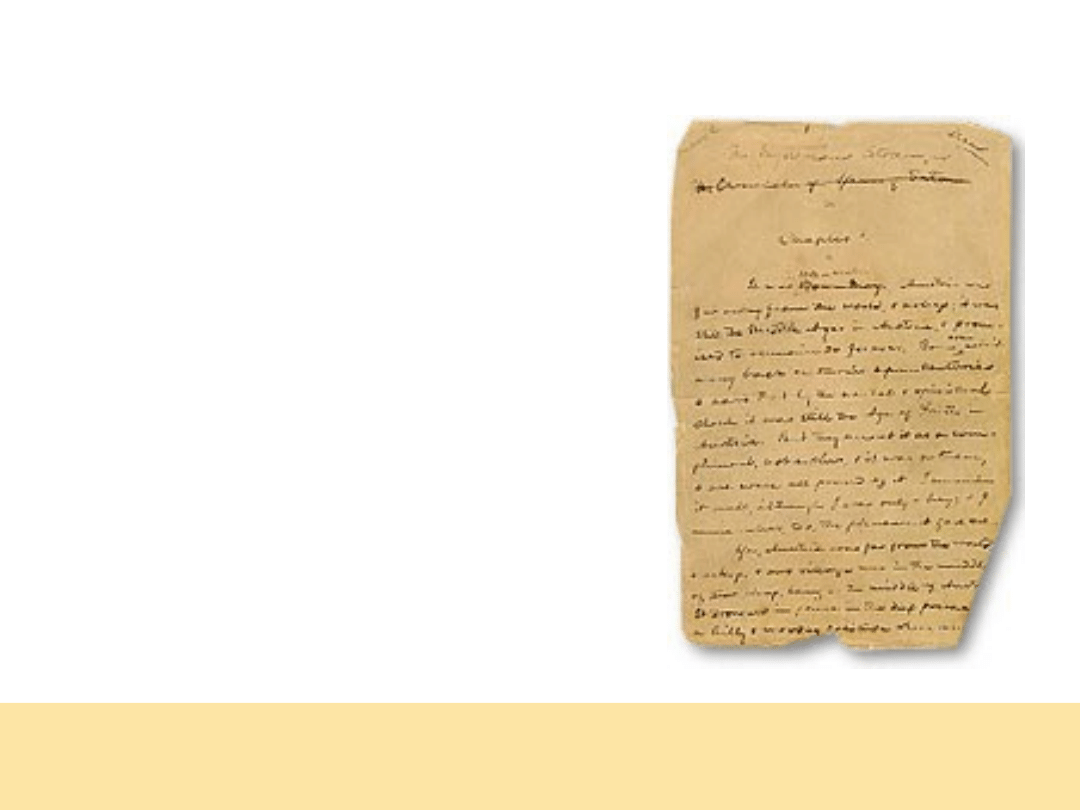 The Mysterious Stranger
The Chronicle of Young Satan
Chapter 1
It was 1702 — May. Austria was
far away from the world, & asleep; it was
still the Middle Ages in Austria, & prom-
ised to remain so forever. Some even
away back centuries upon centuries
& said that by the mental & spiritual
clock it was still the Age of Faith in
Austria. But they meant it as a com-
pliment, not a slur, & it was so taken,
& we were all proud of it. I remember
it well, although I was only a boy; & I
remember, too, the pleasure it gave me.
Yes, Austria was far from the world
& asleep, & our village was in the middle
of that sleep, being in the middle of Austria.
It drowsed in peace in the deep privacy
a hilly & woodsy solitude where